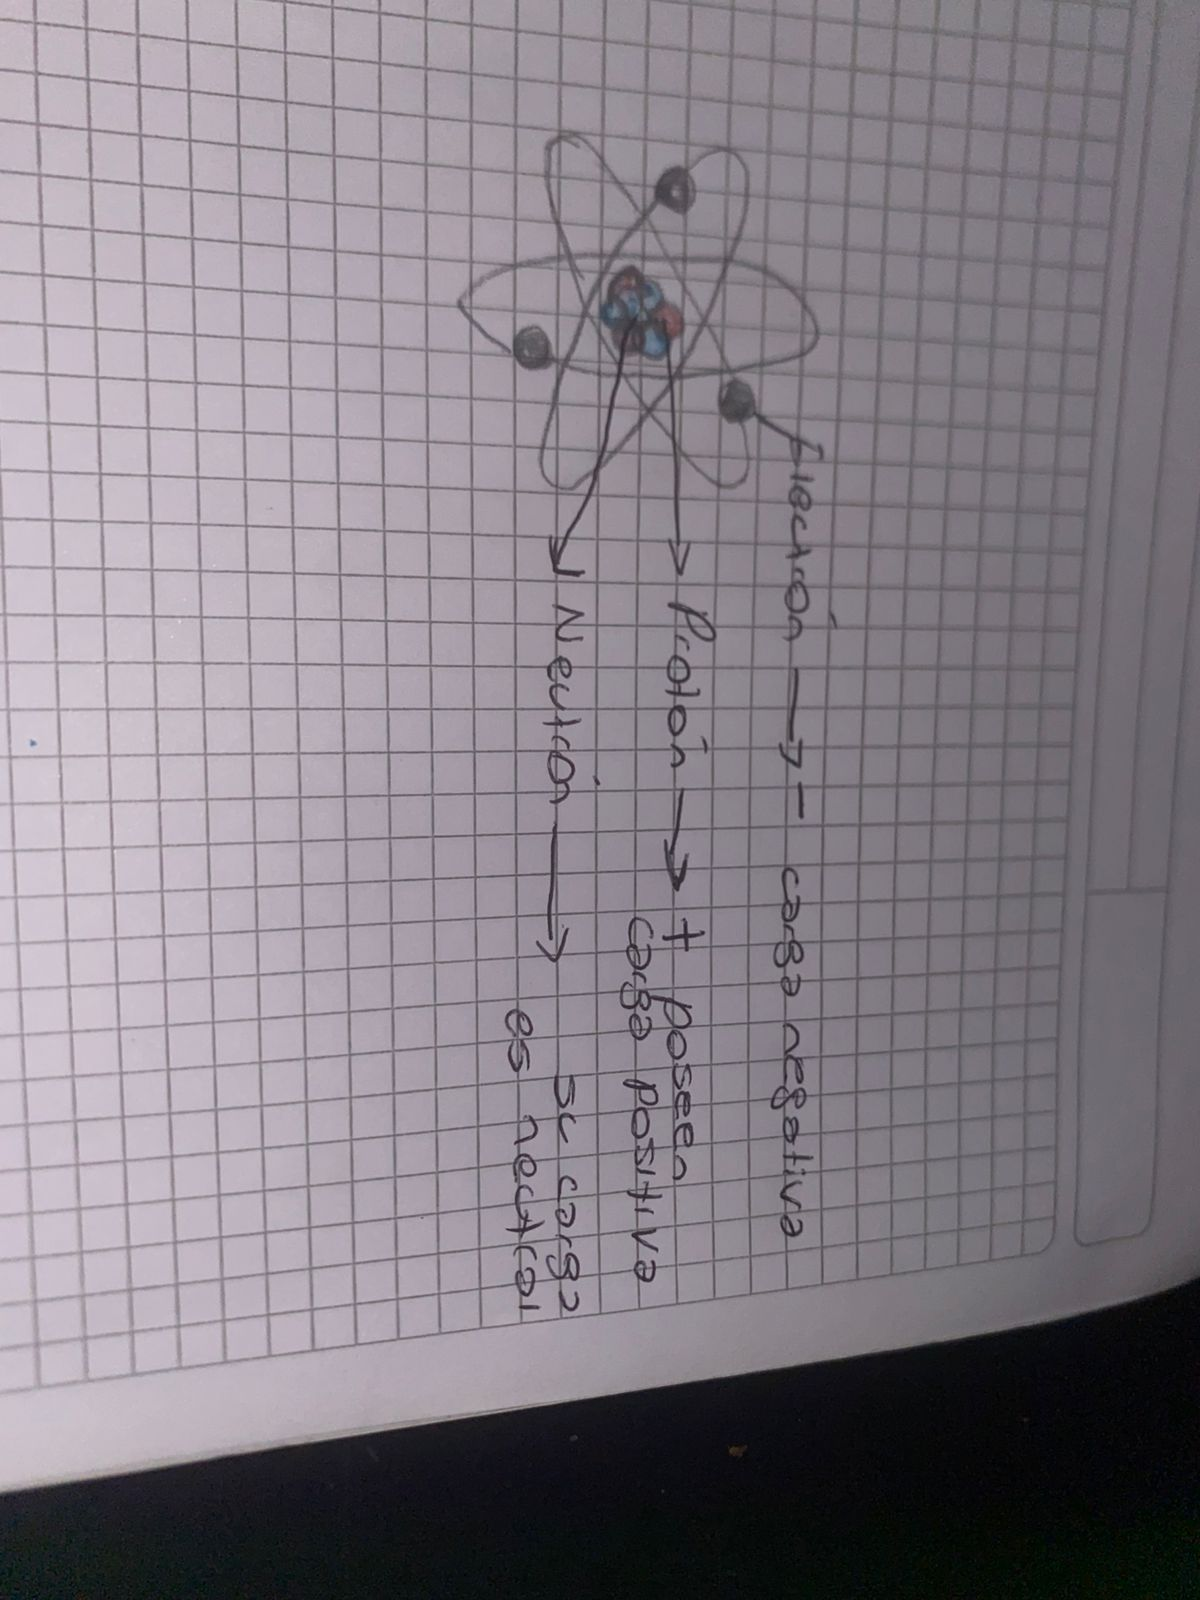 Electrón → - carga negativa
Protón → + poseen
carga positiva
Neutrón → su carga
es neutral